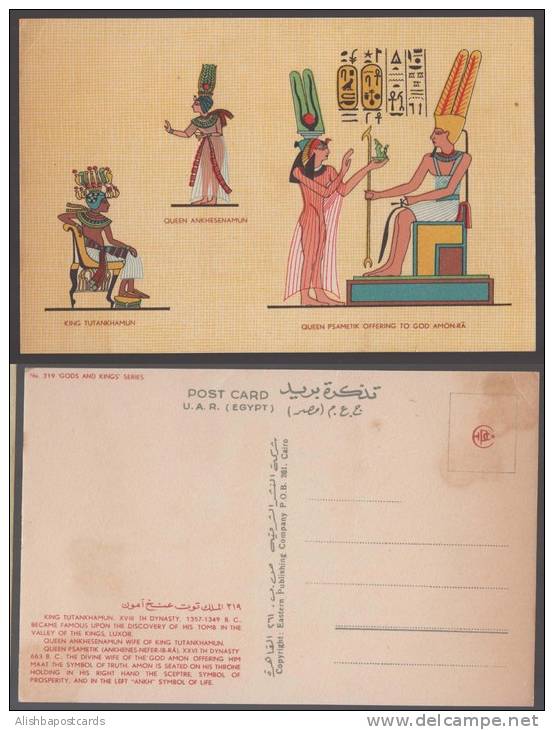 QUEEN ANKHESENAMUN
KING TUTANKHAMUN
QUEEN PSAMETIK OFFERING TO GOD AMON-RÂ
No. 319 'GODS AND KINGS' SERIES
POST CARD
U. A. R. (EGYPT)
تذكرة بريد
ج.ع.م (مصر)
شركة النشر الشرقية ص.ب. ٣٦١ القاهرة
Copyright: Eastern Publishing Company P.O.B. 361. Cairo
٣١٩ الملك توت عنخ آمون
KING TUTANKHAMUN. XVIII TH DYNASTY. 1357-1349 B. C.
BECAME FAMOUS UPON THE DISCOVERY OF HIS TOMB IN THE
VALLEY OF THE KINGS, LUXOR.
QUEEN ANKHESENAMUN WIFE OF KING TUTANKHAMUN.
QUEEN PSAMETIK (ANKHENES-NEFER-IB-RÂ). XXVI TH DYNASTY
663 B. C. THE DIVINE WIFE OF THE GOD AMON OFFERING HIM
MAAT THE SYMBOL OF TRUTH. AMON IS SEATED ON HIS THRONE
HOLDING IN HIS RIGHT HAND THE SCEPTRE, SYMBOL OF
PROSPERITY, AND IN THE LEFT "ANKH" SYMBOL OF LIFE.
Alishbapostcards
www.delcampe.net